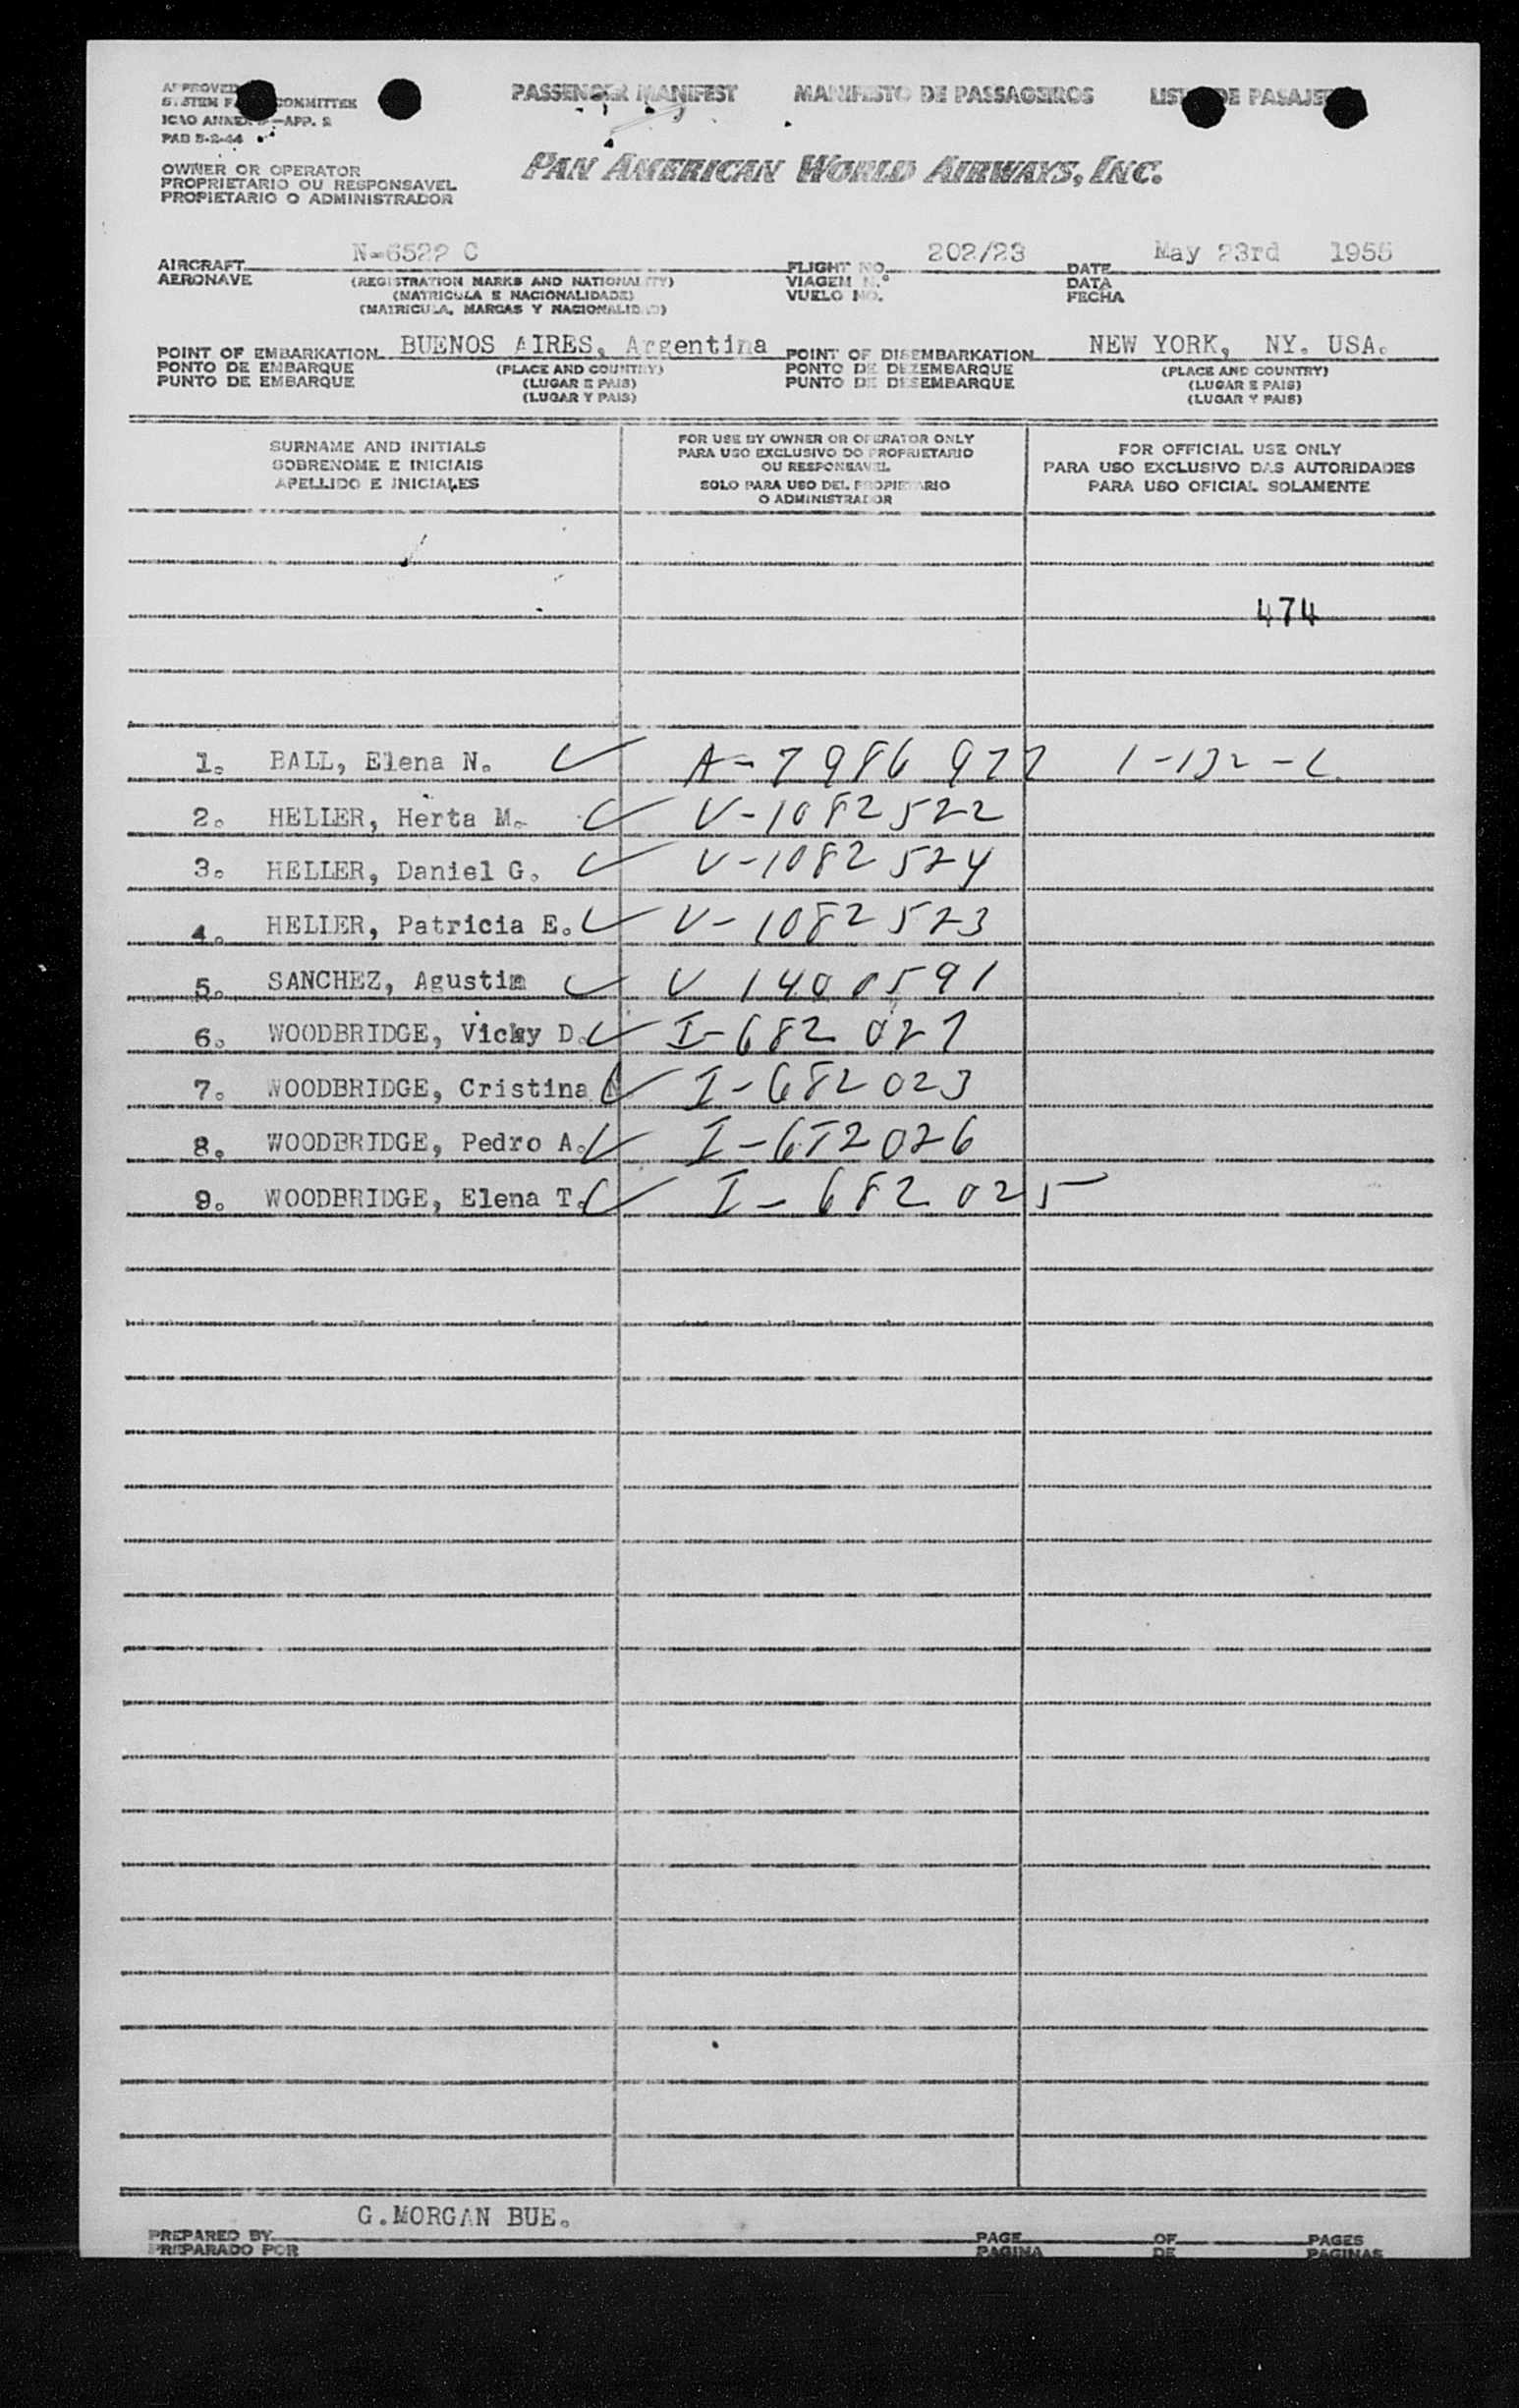 APPROVED
SYSTEM F COMMITTEE
ICAO ANNEX 9—APP. 2
PAD 5-2-44
PASSENGER MANIFEST MANIFESTO DE PASSAGEIROS LIST DE PASAJE
OWNER OR OPERATOR
PROPRIETARIO OU RESPONSAVEL
PROPIETARIO O ADMINISTRADOR
PAN AMERICAN WORLD AIRWAYS, INC.
AIRCRAFT N-6522 C FLIGHT NO. 202/23 DATE May 23rd 1955
AERONAVE (REGISTRATION MARKS AND NATIONALITY) VIAGEM N.° DATA
(MATRICULA E NACIONALIDADE) VUELO NO. FECHA
(MATRICULA, MARCAS Y NACIONALIDAD)
POINT OF EMBARKATION BUENOS AIRES, Argentina POINT OF DISEMBARKATION NEW YORK, NY. USA.
PONTO DE EMBARQUE (PLACE AND COUNTRY) PONTO DE DEZEMBARQUE (PLACE AND COUNTRY)
PUNTO DE EMBARQUE (LUGAR E PAIS) PUNTO DE DESEMBARQUE (LUGAR E PAIS)
(LUGAR Y PAIS) (LUGAR Y PAIS)
SURNAME AND INITIALS
SOBRENOME E INICIAIS
APELLIDO E INICIALES
FOR USE BY OWNER OR OPERATOR ONLY
PARA USO EXCLUSIVO DO PROPRIETARIO
OU RESPONSAVEL
SOLO PARA USO DEL PROPIETARIO
O ADMINISTRADOR
FOR OFFICIAL USE ONLY
PARA USO EXCLUSIVO DAS AUTORIDADES
PARA USO OFICIAL SOLAMENTE
474
1. BALL, Elena N. A-7986 977 1-132-L
2. HELLER, Herta M. V-1082522
3. HELLER, Daniel G. V-1082524
4. HELLER, Patricia E. V-1082523
5. SANCHEZ, Agustin V 1400591
6. WOODBRIDGE, Vicky D. I-682 027
7. WOODBRIDGE, Cristina I-682 023
8. WOODBRIDGE, Pedro A. I-682026
9. WOODBRIDGE, Elena T. I-682 025
G.MORGAN BUE.
PREPARED BY PAGE OF PAGES
PREPARADO POR PAGINA DE PAGINAS